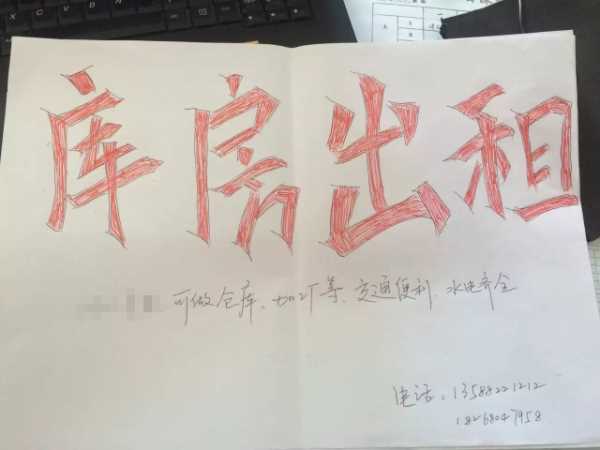 库房出租
可做仓库、加工厂等、交通便利、水电齐全
电话：13588221212
18268047958